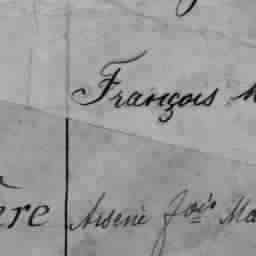 François M
ère Arsène fois Ma